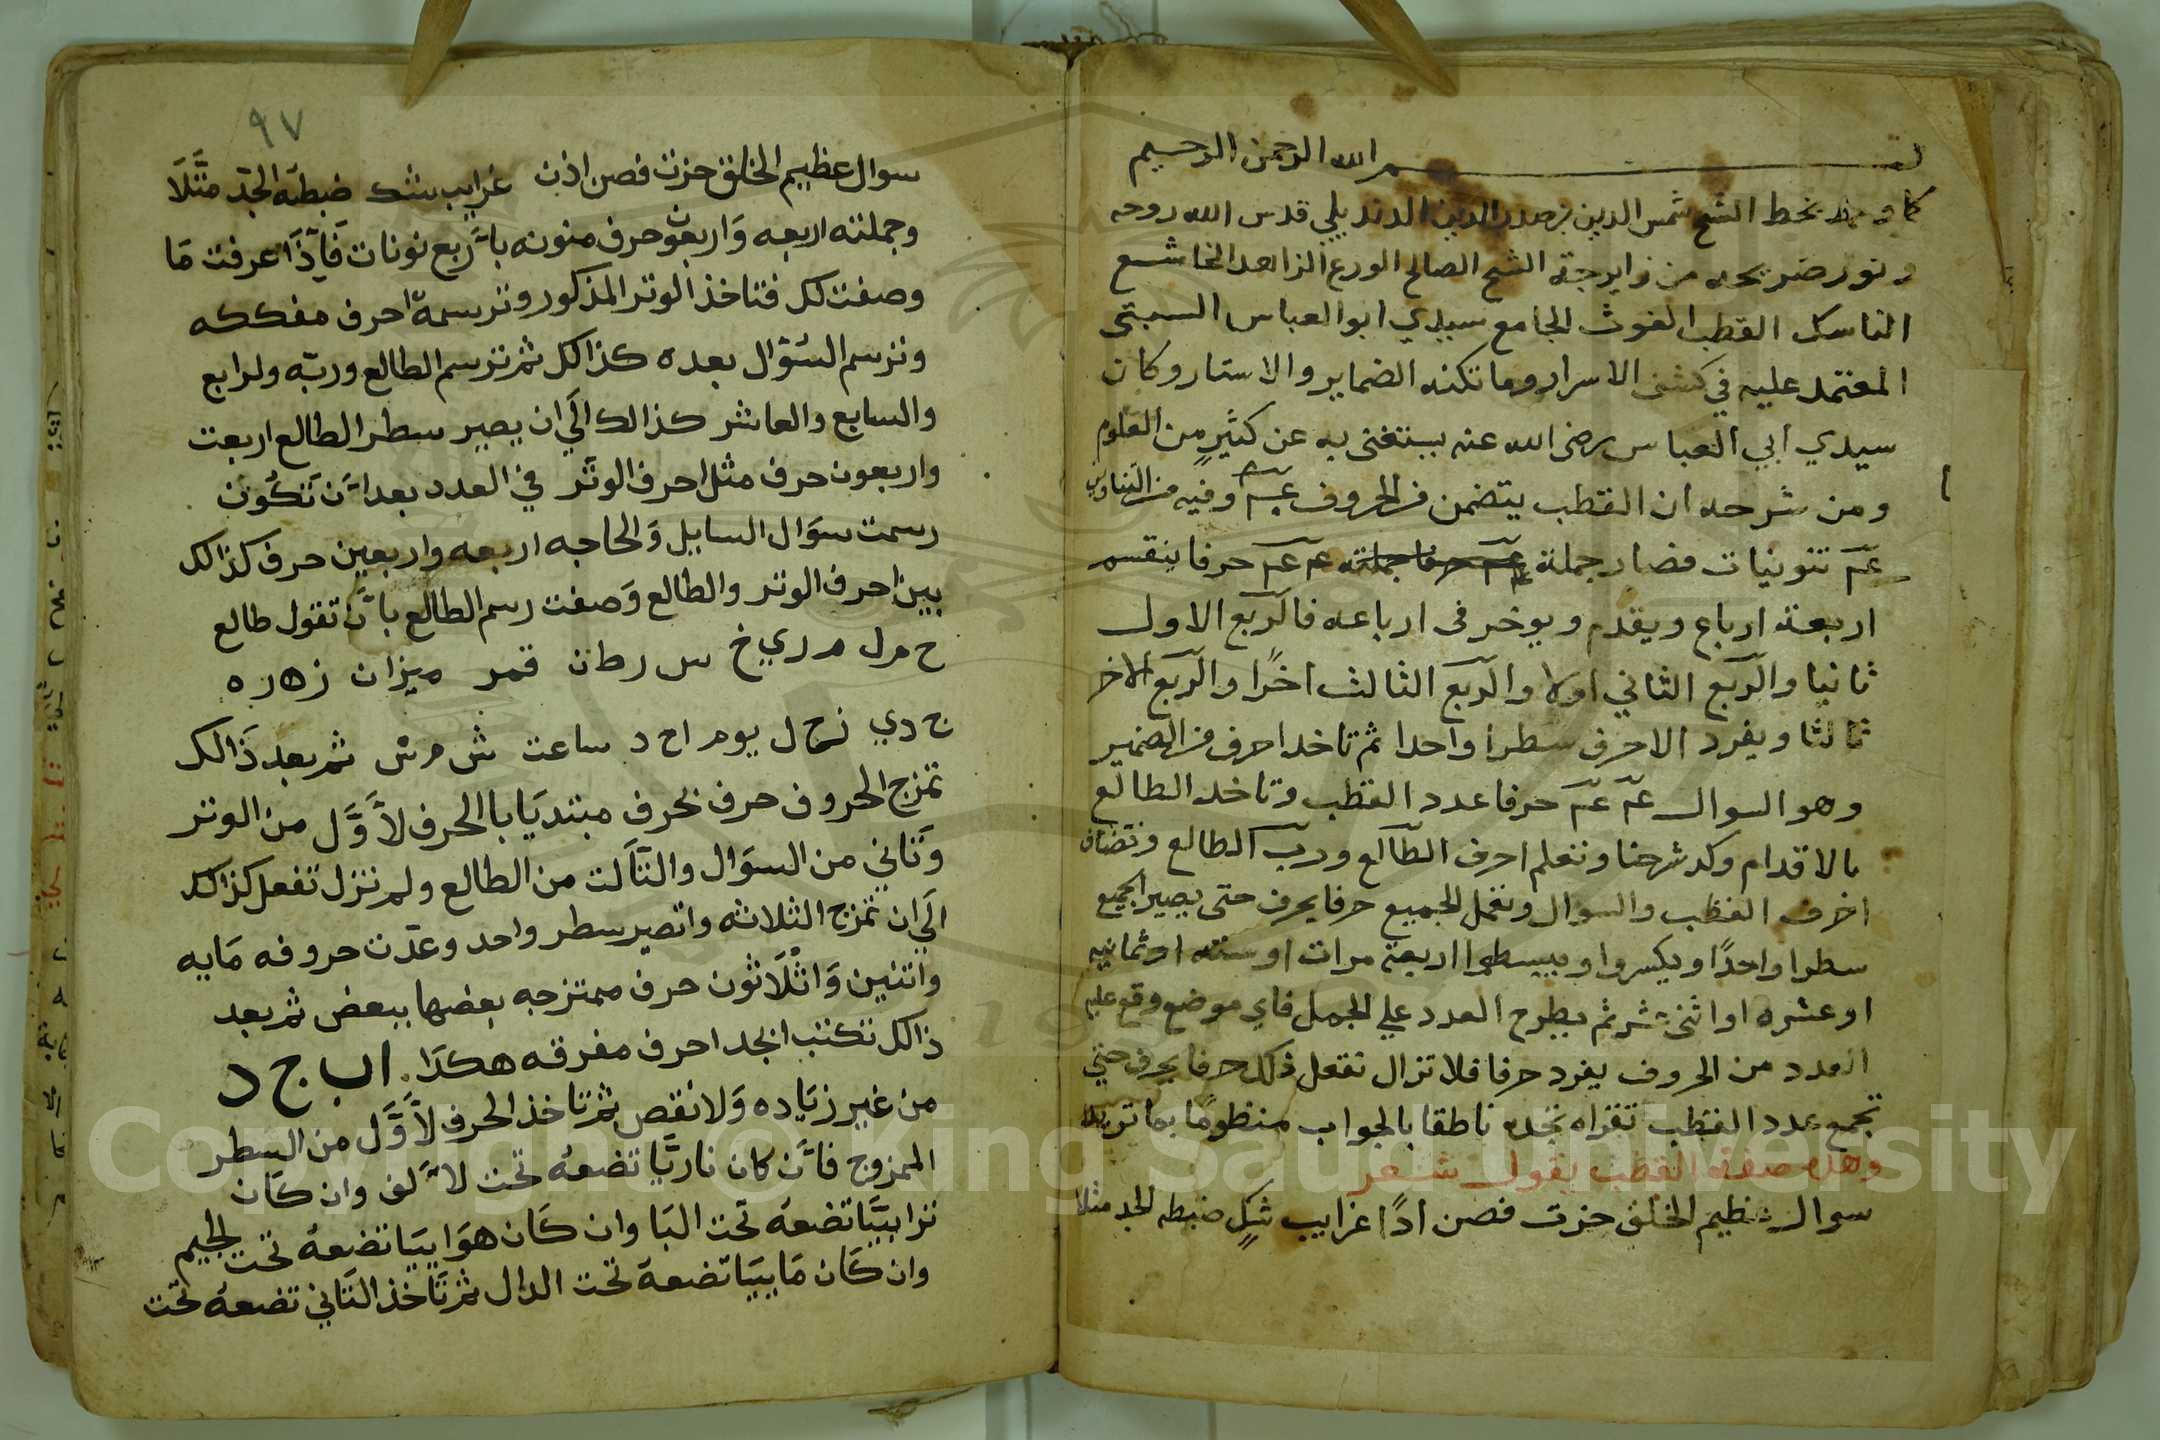 بسم الله الرحمن الرحيم
بخط الشيخ شمس الدين بن صدر الدين الدنديلي قدس الله روحه
ونور ضريحه من زايرجة الشيخ الصالح الورع الزاهد الخاشع
الناسك القطب الغوث الجامع سيدي ابو العباس السبتى
المعتمد عليه في كشف الاسرار وما تكنه الضماير والاستار وكان
سيدي ابي العباس رضى الله عنه يستغنى به عن كثيرٍ من العلوم
ومن شرحه ان القطب يتضمن من الحروف وفيه من
تنوينات فصار جملة حرفا ينقسم
اربعة ارباع ويقدم ويوخر فى ارباعه فالربع الاول
ثانيا والربع الثاني اولا والربع الثالث اخرًا والربع الاخر
ثالثا ويفرد الاحرف سطرا واحدا ثم تاخد احرف من الضمير
وهو السوال حرفا عدد القطب وتاخد الطالع
بالاقدام وكد شرحنا وتعلم احرف الطالع ورب الطالع وتضاف
احرف القطب والسوال وتعمل الجميع حرفا بحرف حتى يصير الجميع
سطرا واحدًا ويكسروا ويبسطوا اربعة مرات او سته او ثمانيه
او عشره او اثنى عشر ثم يطرح العدد علي الجمل فاي موضع وقع عليه
العدد من الحروف يفرد حرفا فلا تزال تفعل ذلك حرفا بحرف حتي
تجمع عدد القطب تقراه تجده ناطقا بالجواب منظومًا بما تريد
وهده صفة القطب يقول شعر
سوال عظيم الخلق حزت فصن ادًا غرايب شكٍ ضبطه الجد مثلا
٩٧
سوال عظيم الخلق حزت فصن اذن غرايب شك ضبطه الجد مثلا
وجملته اربعه واربعون حرف منونه باربع نونات فاذا عرفت ما
وصفت لك فتاخذ الوتر المذكور وترسمه احرف مفككه
وترسم السؤال بعده كذالك ثم ترسم الطالع وربه والرابع
والسابع والعاشر كذالك الي ان يصير سطر الطالع اربعت
واربعون حرف مثل احرف الوتر في العدد بعد ان تكون
رسمت سوال السايل والحاجه اربعه واربعين حرف كذالك
بين احرف الوتر والطالع وصفت رسم الطالع بان تقول طالع
ح م ل م ري خ س رطان قمر ميزان زه ره
ج دي زح ل يوم اح د ساعت ش م ش ثم بعد ذالك
تمزج الحروف حرف بحرف مبتديا باالحرف لاول من الوتر
وتاني من السوال والتالت من الطالع ولم تزل تفعل كزالك
الي ان تمزج الثلاثه واتصير سطر واحد وعدت حروفه مايه
واتنين واثلاثون حرف ممتزجه بعضها ببعض ثم بعد
ذالك تكتب ابجد احرف مفرقه هكذا . ا ب ج د
من غير زياده ولا نقص ثم تاخذ الحرف لاول من السطر
الممزوج فان كان ناريا تضعه تحت لالف وان كان
ترابيا تضعه تحت البا وان كان هواييا تضعه تحت الجيم
وان كان ماييا تضعه تحت الدال ثم تاخذ التاني تضعه تحت
Copyright © King Saud University